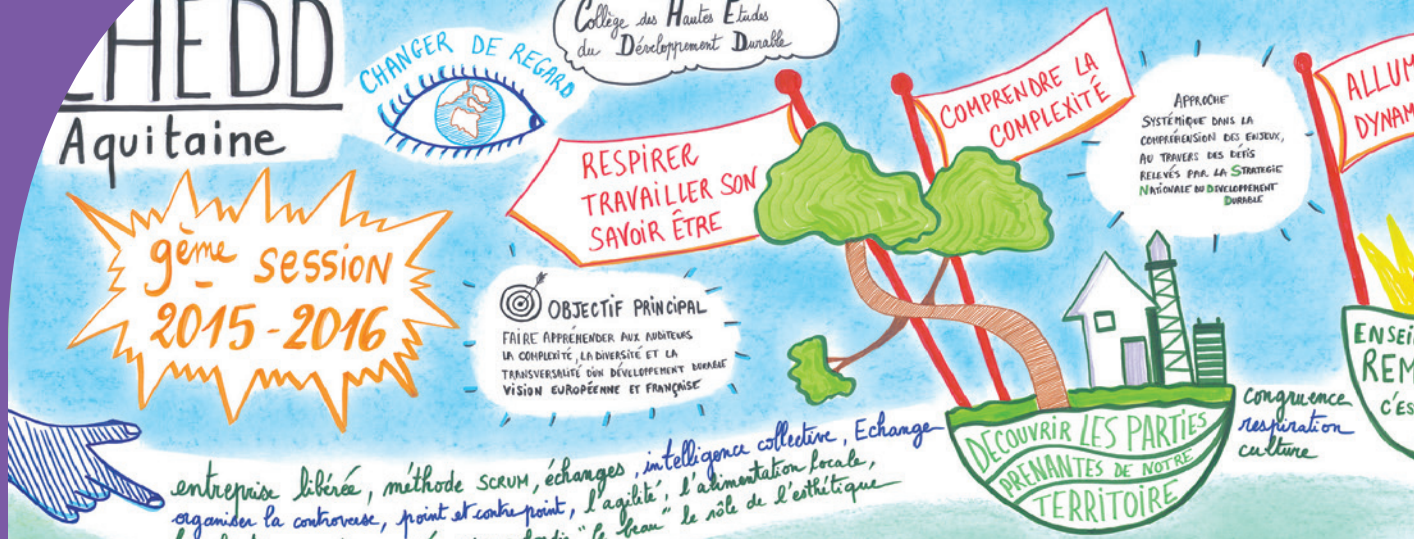 CHEDD
Aquitaine
9ème SESSION
2015-2016
CHANGER DE REGARD
Collège des Hautes Etudes
du Développement Durable
RESPIRER
TRAVAILLER SON
SAVOIR ÊTRE
OBJECTIF PRINCIPAL
FAIRE APPRÉHENDER AUX AUDITEURS
LA COMPLEXITÉ, LA DIVERSITÉ ET LA
TRANSVERSALITÉ D'UN DÉVELOPPEMENT DURABLE
VISION EUROPÉENNE ET FRANÇAISE
COMPRENDRE LA
COMPLEXITÉ
APPROCHE
SYSTÉMIQUE DANS LA
COMPRÉHENSION DES ENJEUX,
AU TRAVERS DES DÉFIS
RELEVÉS PAR LA STRATEGIE
NATIONALE DU DEVELOPPEMENT
DURABLE
ALLUM
DYNAM
DECOUVRIR LES PARTIES
PRENANTES DE NOTRE
TERRITOIRE
congruence
respiration
culture
ENSEI
REM
C'ES
entreprise libérée, méthode SCRUM, échanges, intelligence collective, Echange
organiser la controverse, point et contre point, l'agilité, l'alimentation locale,
"le beau" le rôle de l'esthétique